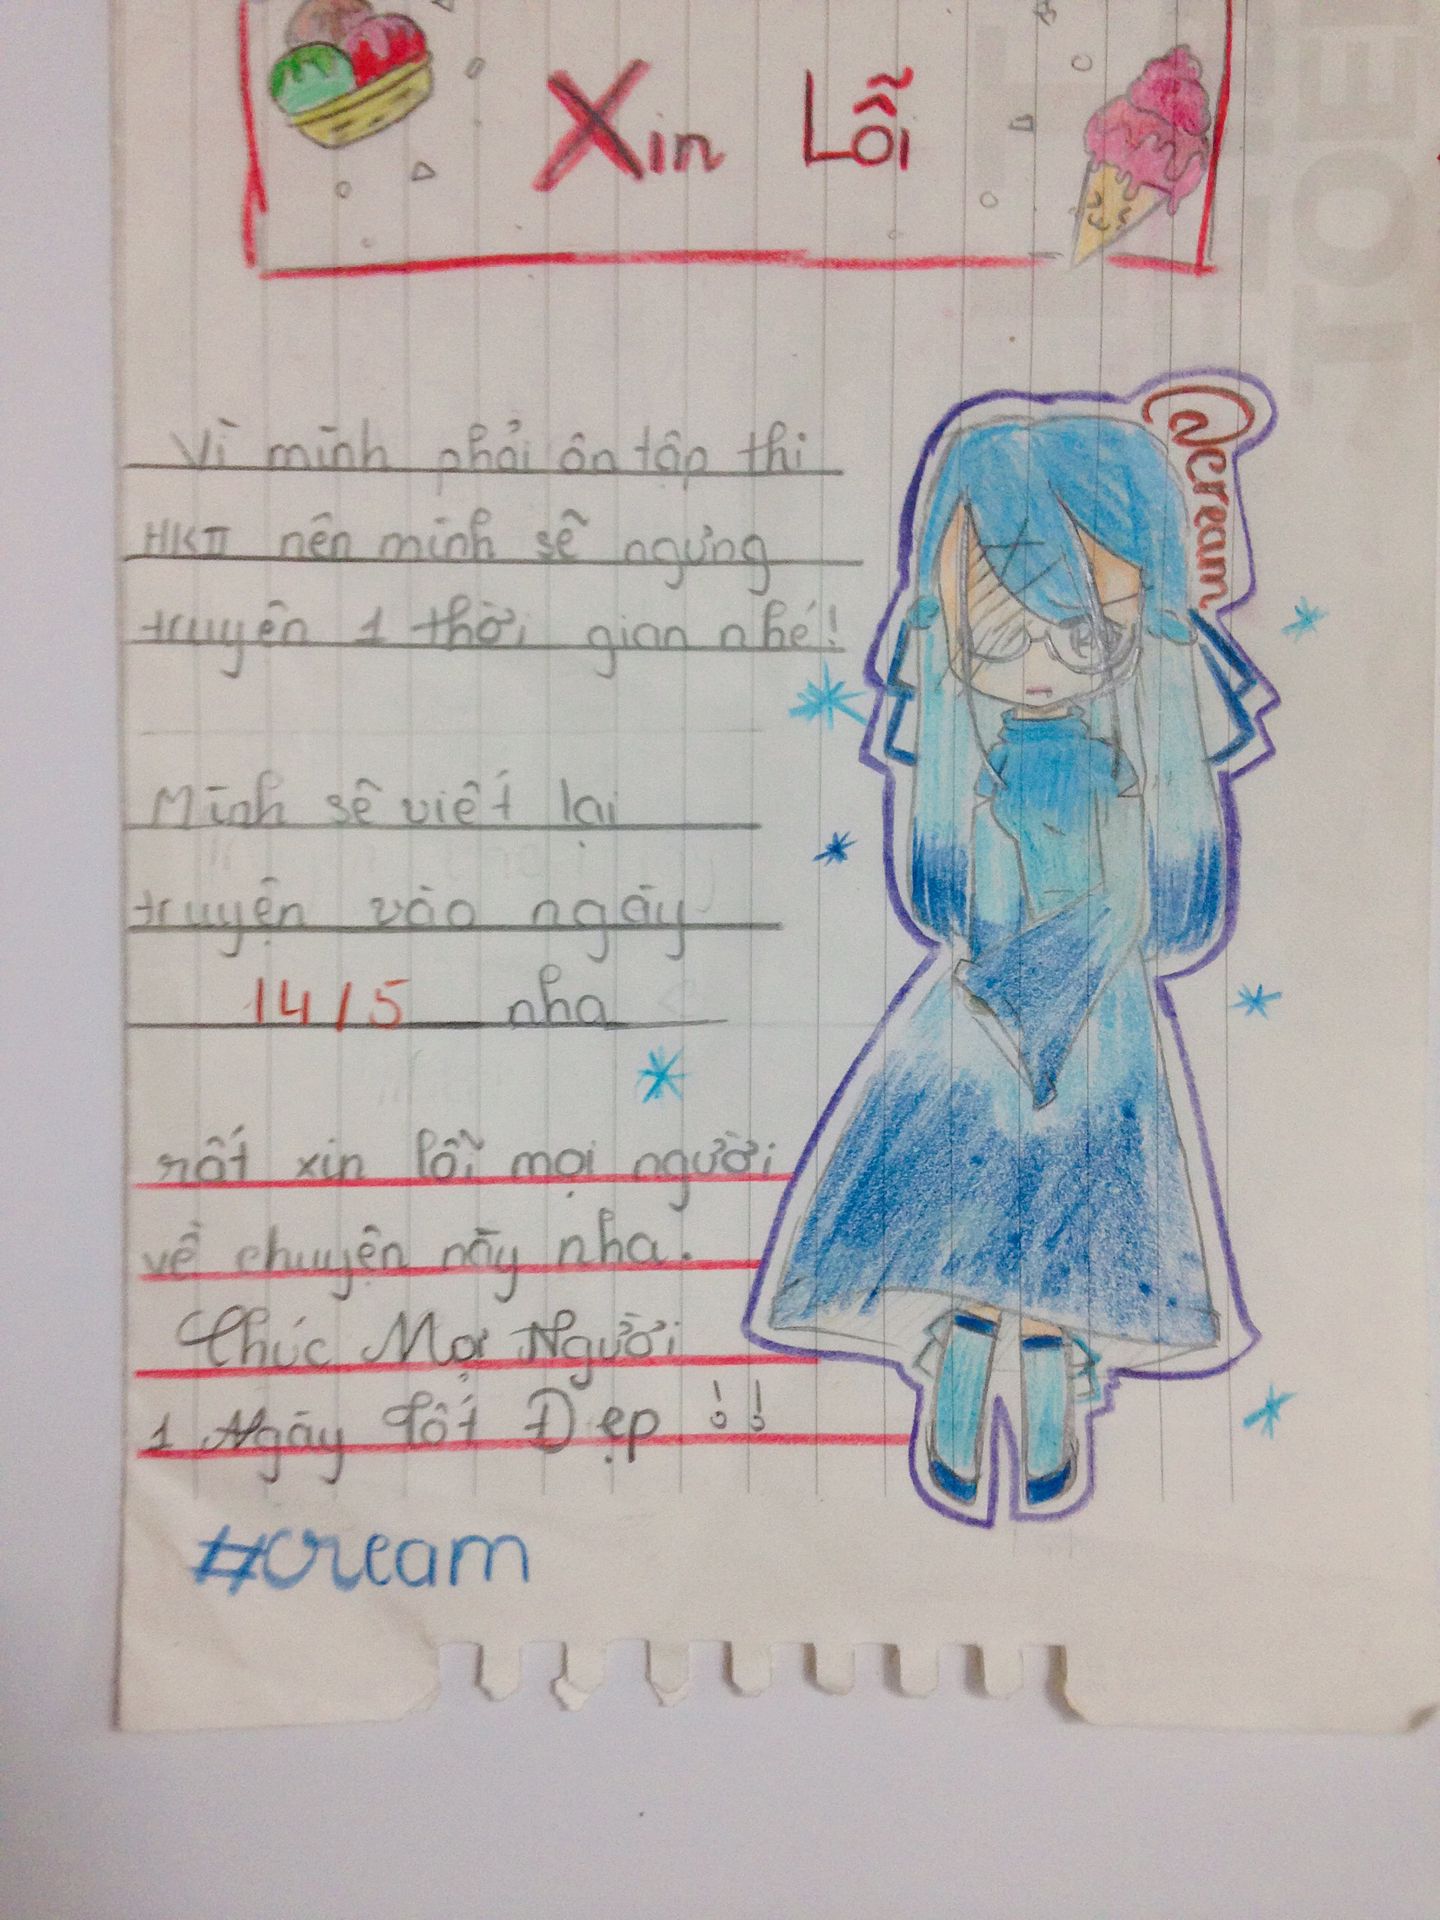 Xin Lỗi
Vì mình phải ôn tập thi
HKII nên mình sẽ ngưng
truyện 1 thời gian nhé!
Mình sẽ viết lại
truyện vào ngày
14/5 nha
rất xin lỗi mọi người
về chuyện này nha.
Chúc Mọi Người
1 Ngày Tốt Đẹp !!
#cream